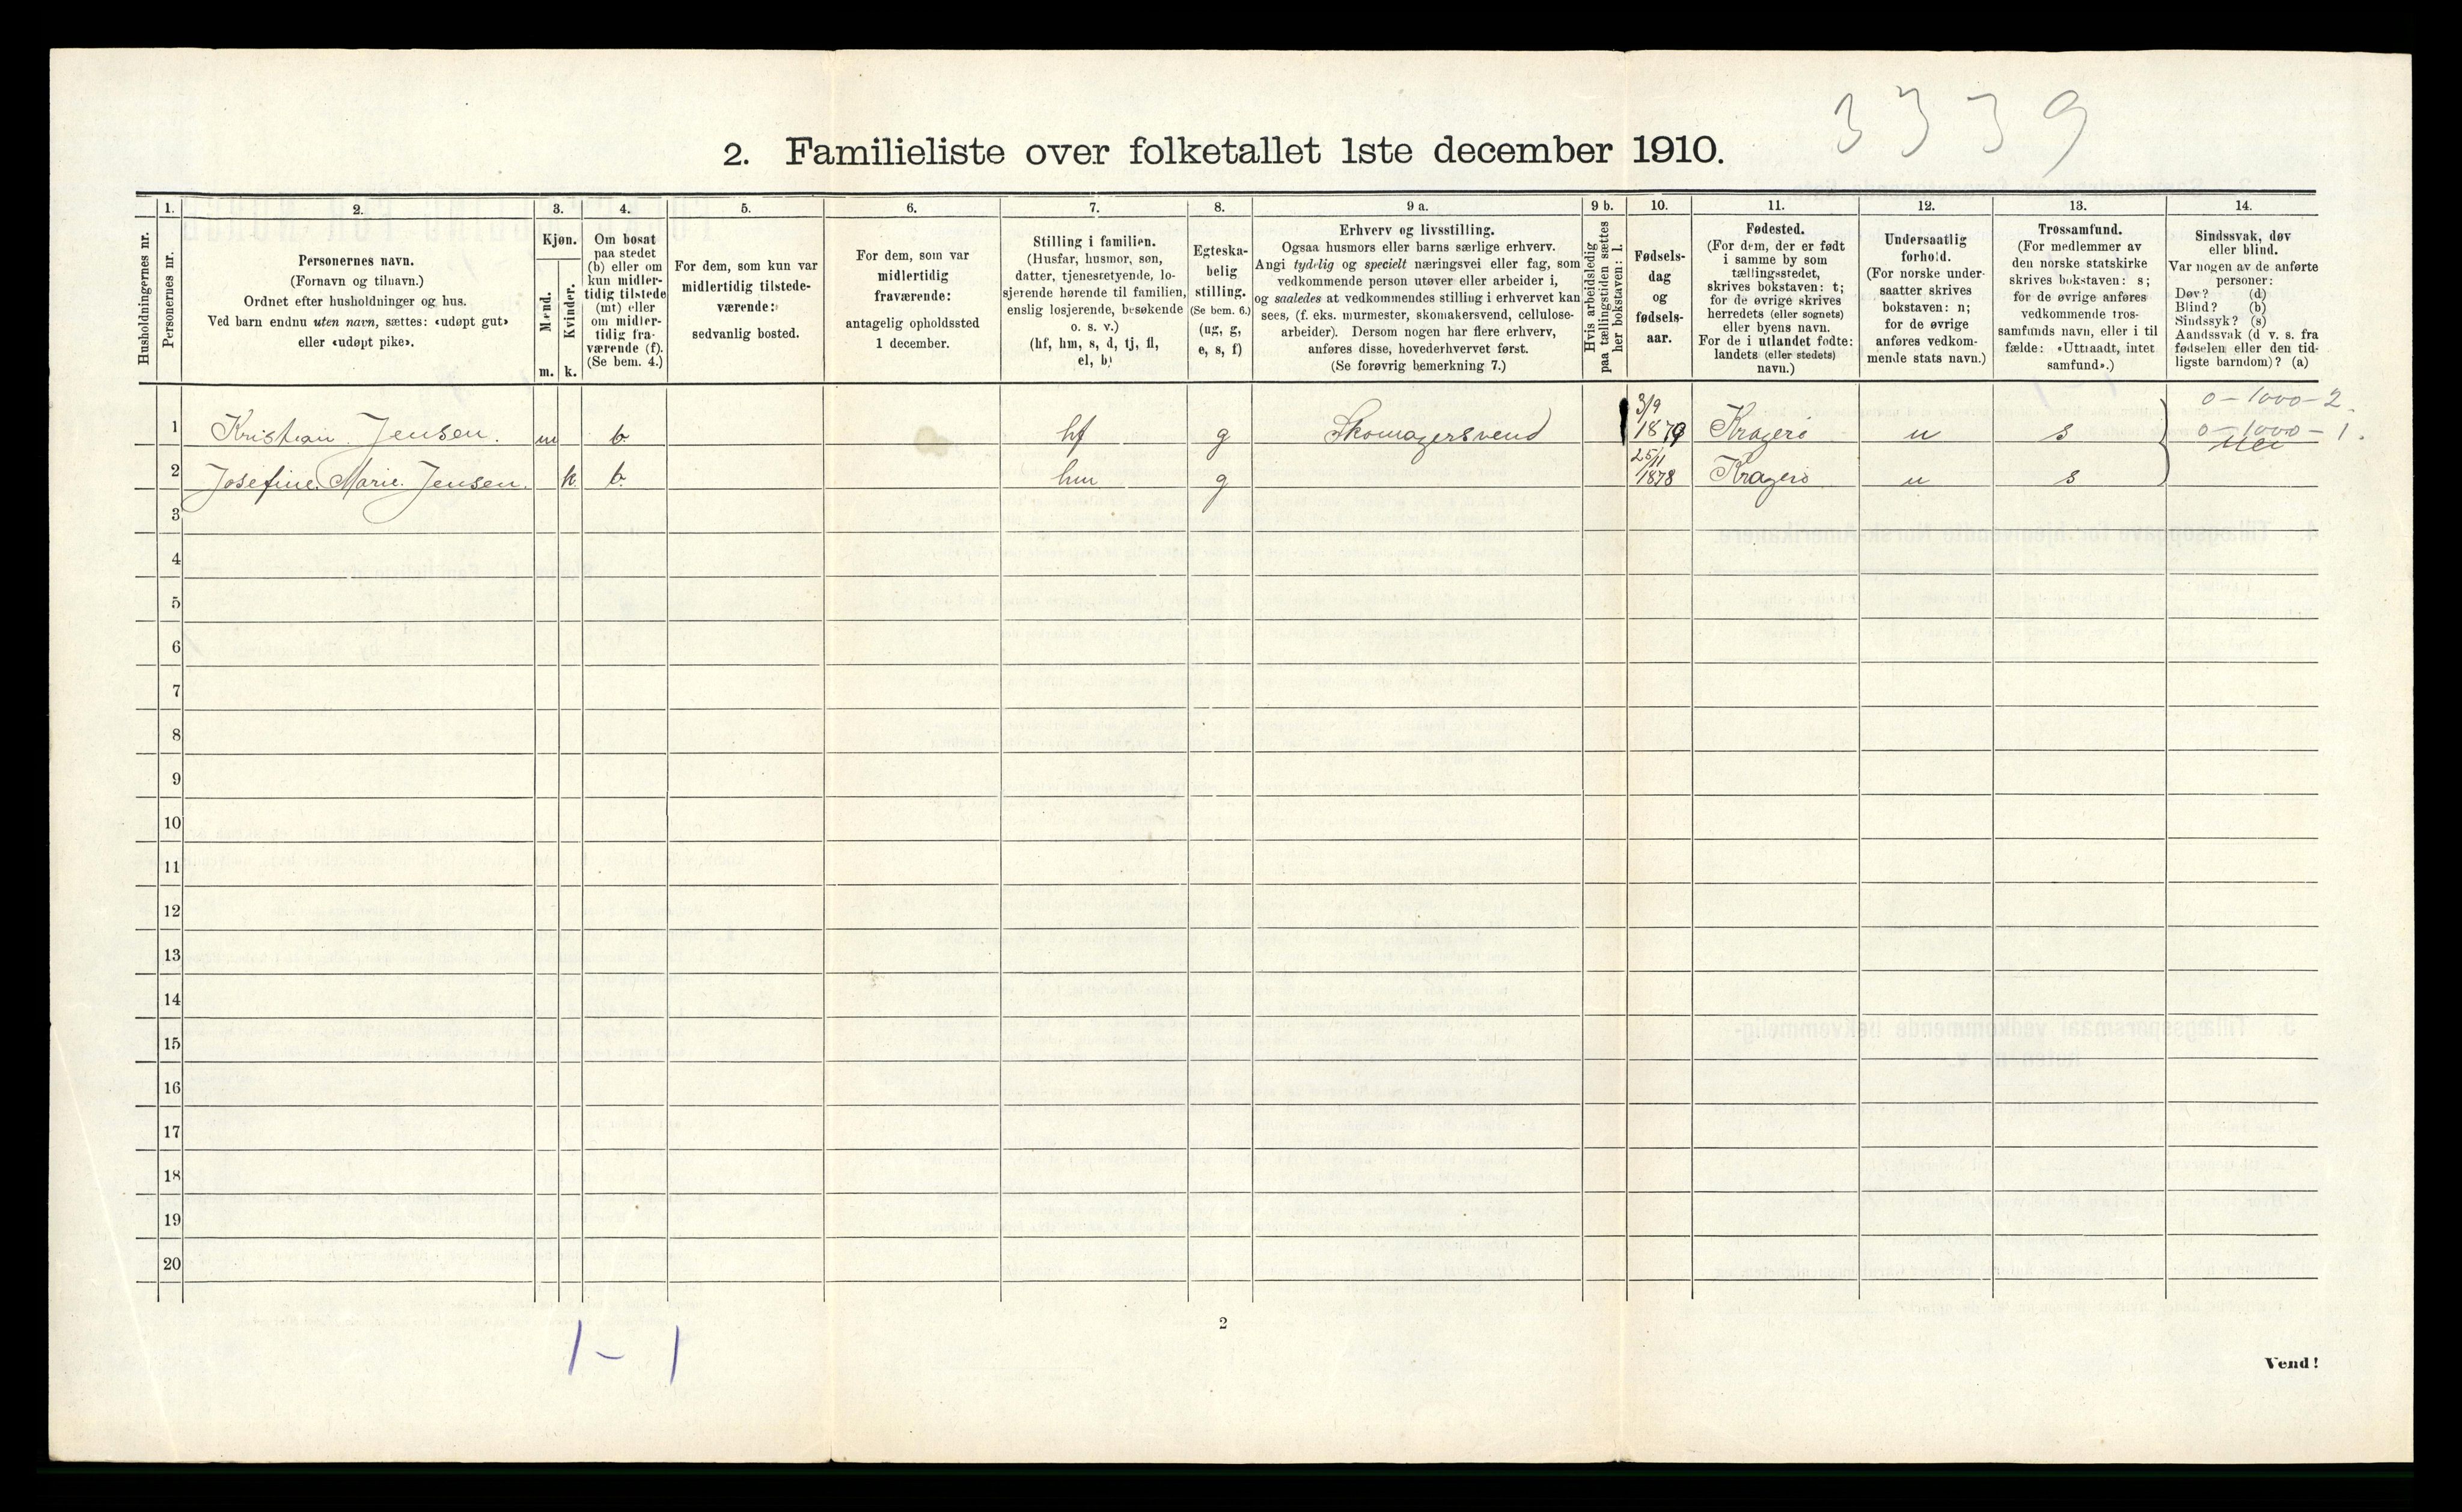 3339
2. Familieliste over folketallet 1ste december 1910.
Husholdningernes nr.
1.
Personernes nr.
2.
Personernes navn.
(Fornavn og tilnavn.)
Ordnet efter husholdninger og hus.
Ved barn endnu uten navn, sættes: «udøpt gut»
eller «udøpt pike».
3.
Kjøn.
Mænd.
m.
Kvinder.
k.
4.
Om bosat
paa stedet
(b) eller om
kun midler-
tidig tilstede
(mt) eller
om midler-
tidig fra-
værende (f).
(Se bem. 4.)
5.
For dem, som kun var
midlertidig tilstede-
værende:
sedvanlig bosted.
6.
For dem, som var
midlertidig
fraværende:
antagelig opholdssted
1 december.
7.
Stilling i familien.
(Husfar, husmor, søn,
datter, tjenestetyende, lo-
sjerende hørende til familien,
enslig losjerende, besøkende
o. s. v.)
(hf, hm, s, d, tj, fl,
el, b)
8.
Egteska-
belig
stilling.
(Se bem. 6.)
(ug, g,
e, s, f)
9 a.
Erhverv og livsstilling.
Ogsaa husmors eller barns særlige erhverv.
Angi tydelig og specielt næringsvei eller fag, som
vedkommende person utøver eller arbeider i,
og saaledes at vedkommendes stilling i erhvervet kan
sees, (f. eks. murmester, skomakersvend, cellulose-
arbeider). Dersom nogen har flere erhverv,
anføres disse, hovederhvervet først.
(Se forøvrig bemerkning 7.)
9 b.
Hvis arbeidsledig
paa tællingstiden sættes
her bokstaven: l.
10.
Fødsels-
dag
og
fødsels-
aar.
11.
Fødested.
(For dem, der er født
i samme by som
tællingsstedet,
skrives bokstaven: t;
for de øvrige skrives
herredets (eller sognets)
eller byens navn.
For de i utlandet fødte:
landets (eller stedets)
navn.)
12.
Undersaatlig
forhold.
(For norske under-
saatter skrives
bokstaven: n;
for de øvrige
anføres vedkom-
mende stats navn.)
13.
Trossamfund.
(For medlemmer av
den norske statskirke
skrives bokstaven: s;
for de øvrige anføres
vedkommende tros-
samfunds navn, eller i til
fælde: «Uttraadt, intet
samfund».)
14.
Sindssvak, døv
eller blind.
Var nogen av de anførte
personer:
Døv? (d)
Blind? (b)
Sindssyk? (s)
Aandssvak (d. v. s. fra
fødselen eller den tid-
ligste barndom)? (a)
0-1000-2.
1 Kristian Jensen. m b hf g Skomagersvend 3/9 1879 Kragerö n s 0-1000-1. nei
2 Josefine Marie Jensen. k b hm g 25/11 1878 Kragerö n s
3
4
5
6
7
8
9
10
11
12
13
14
15
16
17
18
19
20
2
1-1
Vend!